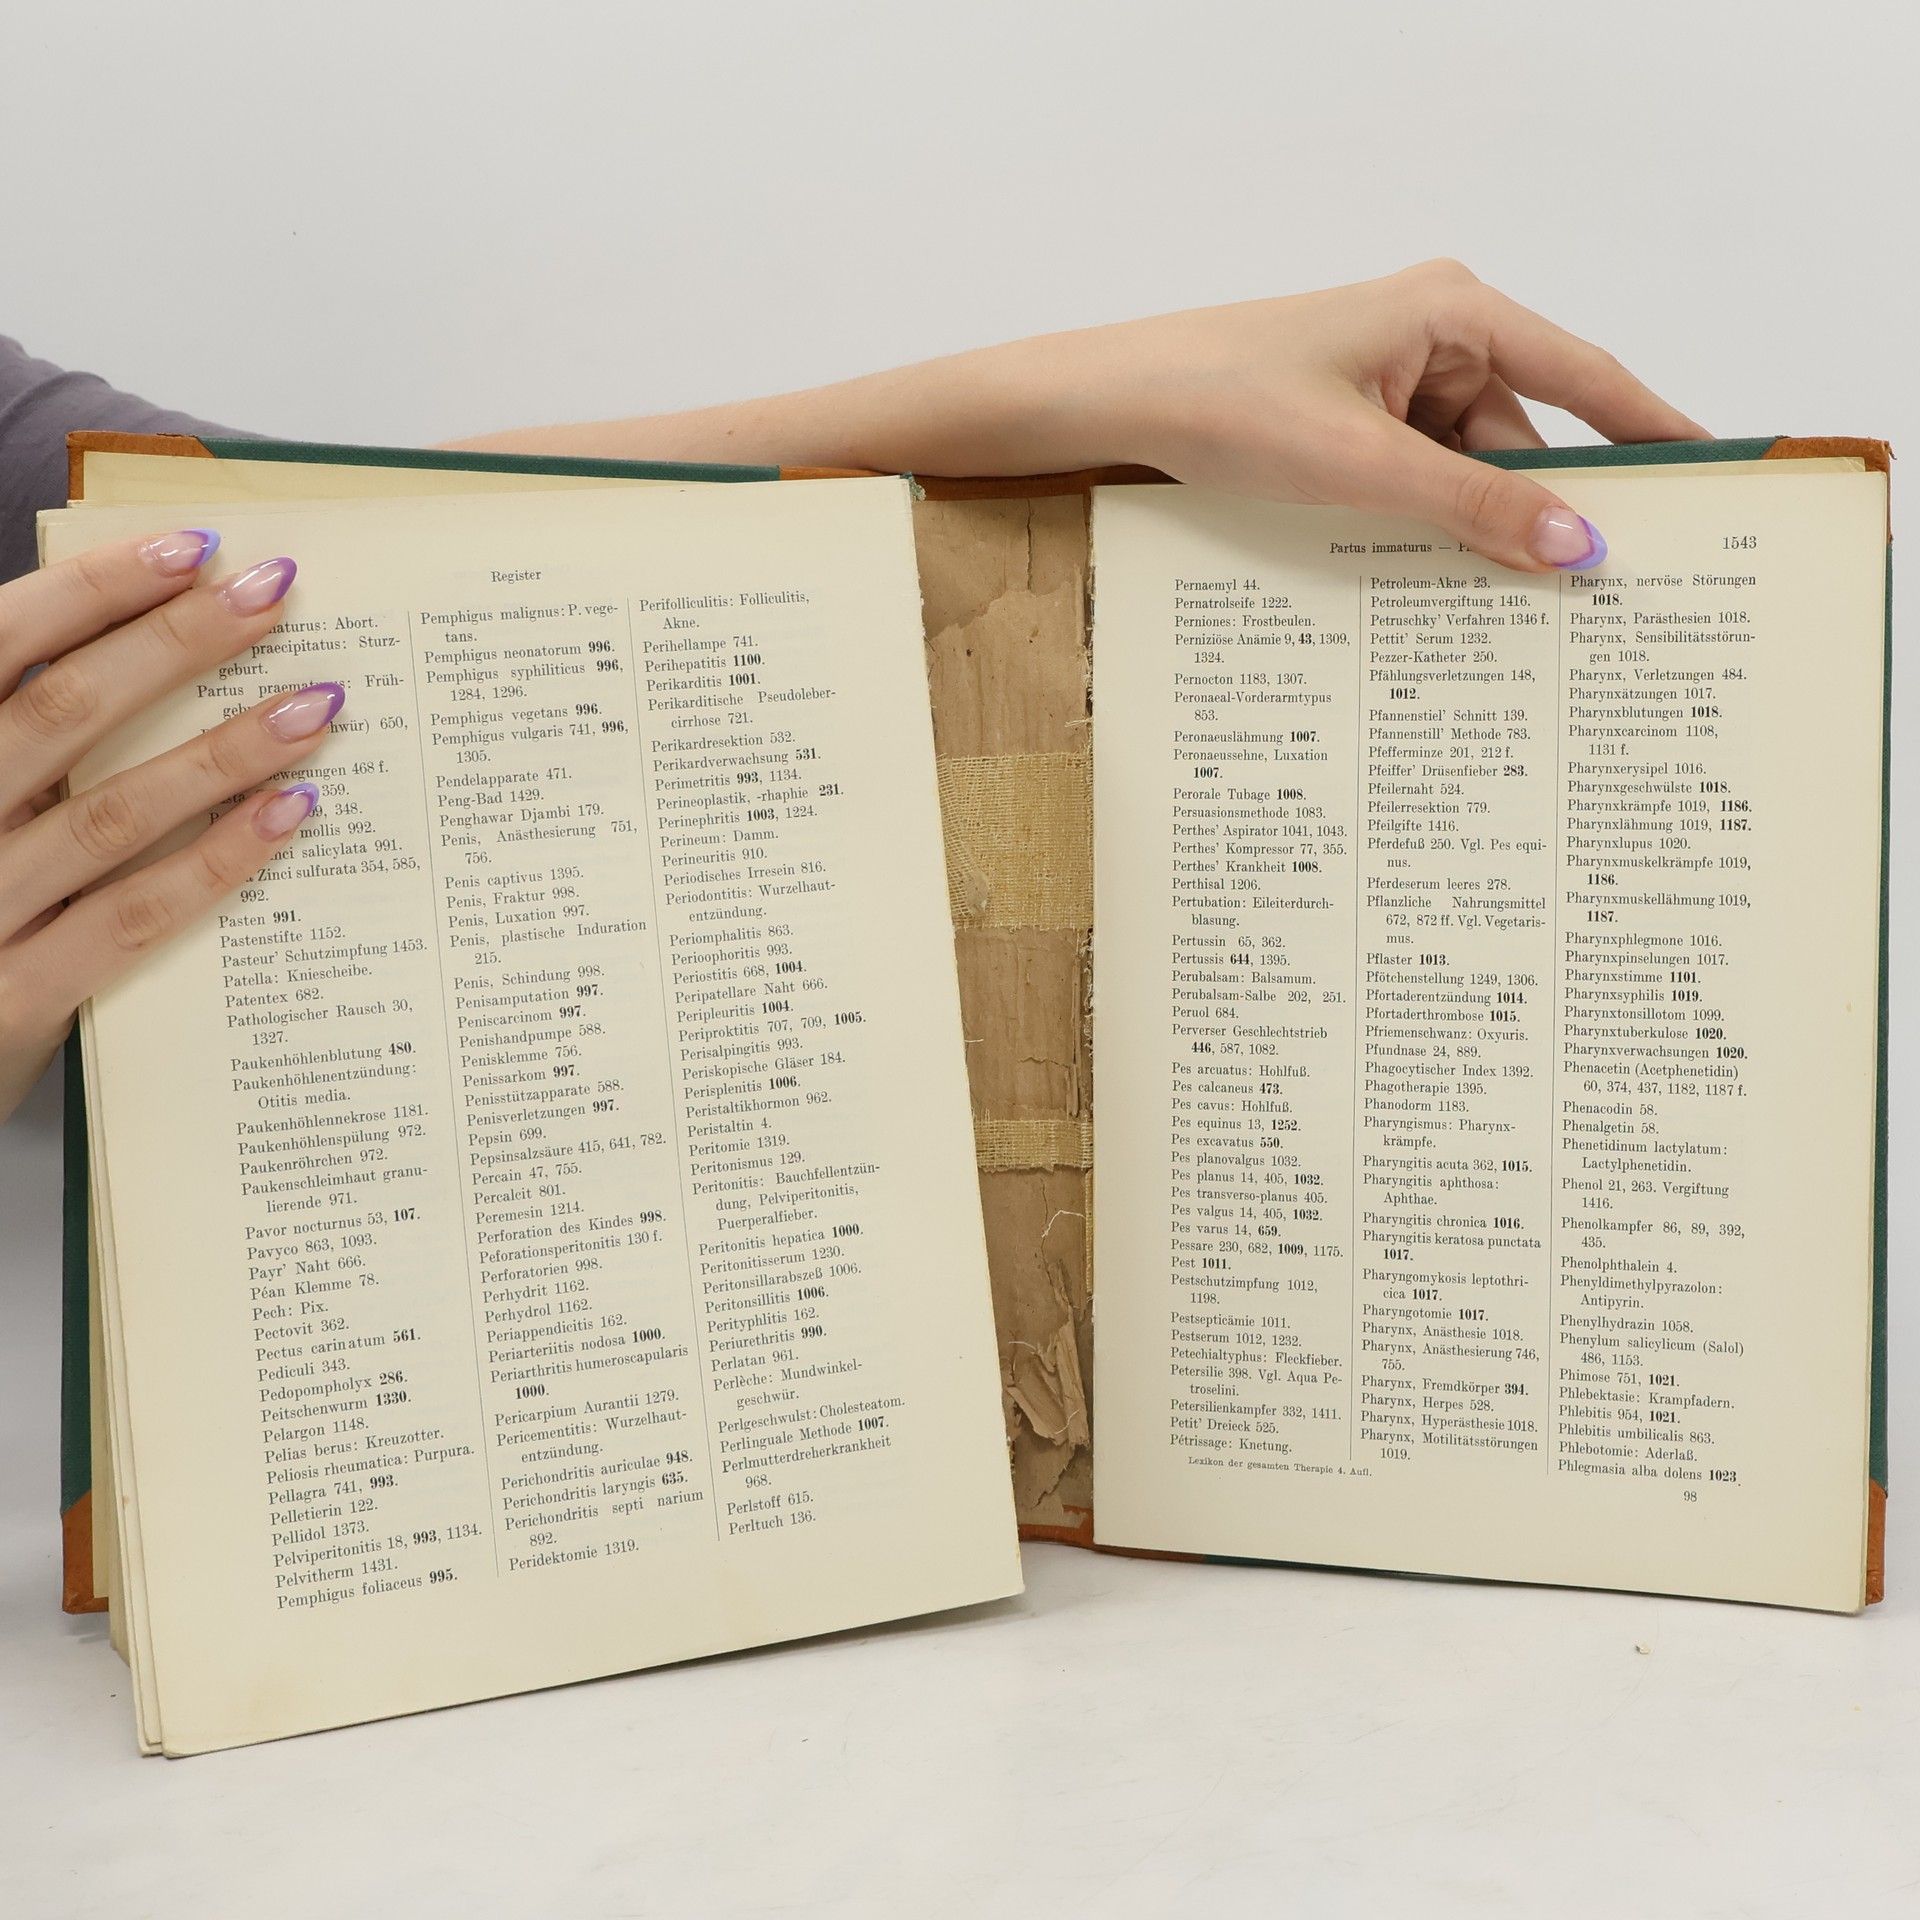 Register
maturus: Abort.
praecipitatus: Sturz-
geburt.
Partus praematurus: Früh-
650,
bewegungen 468 f.
359.
348.
mollis 992.
salicylata 991.
Zinci sulfurata 354, 585,
992.
Pasten 991.
Pastenstifte 1152.
Pasteur' Schutzimpfung 1453.
Patella: Kniescheibe.
Patentex 682.
Pathologischer Rausch 30,
1327.
Paukenhöhlenblutung 480.
Paukenhöhlenentzündung:
Otitis media.
Paukenhöhlennekrose 1181.
Paukenhöhlenspülung 972.
Paukenröhrchen 972.
Paukenschleimhaut granu-
lierende 971.
Pavor nocturnus 53, 107.
Pavyco 863, 1093.
Payr' Naht 666.
Péan Klemme 78.
Pech: Pix.
Pectovit 362.
Pectus carinatum 561.
Pediculi 343.
Pedopompholyx 286.
Peitschenwurm 1330.
Pelargon 1148.
Pelias berus: Kreuzotter.
Peliosis rheumatica: Purpura.
Pellagra 741, 993.
Pelletierin 122.
Pellidol 1373.
Pelviperitonitis 18, 993, 1134.
Pelvitherm 1431.
Pemphigus foliaceus 995.
Pemphigus malignus: P. vege-
tans.
Pemphigus neonatorum 996.
Pemphigus syphiliticus 996,
1284, 1296.
Pemphigus vegetans 996.
Pemphigus vulgaris 741, 996,
1305.
Pendelapparate 471.
Peng-Bad 1429.
Penghawar Djambi 179.
Penis, Anästhesierung 751,
756.
Penis captivus 1395.
Penis, Fraktur 998.
Penis, Luxation 997.
Penis, plastische Induration
215.
Penis, Schindung 998.
Penisamputation 997.
Peniscarcinom 997.
Penishandpumpe 588.
Penisklemme 756.
Penissarkom 997.
Penisstützapparate 588.
Penisverletzungen 997.
Pepsin 699.
Pepsinsalzsäure 415, 641, 782.
Percain 47, 755.
Percalcit 801.
Peremesin 1214.
Perforation des Kindes 998.
Peforationsperitonitis 130 f.
Perforatorien 998.
Perhydrit 1162.
Perhydrol 1162.
Periappendicitis 162.
Periarteriitis nodosa 1000.
Periarthritis humeroscapularis
1000.
Pericarpium Aurantii 1279.
Pericementitis: Wurzelhaut-
entzündung.
Perichondritis auriculae 948.
Perichondritis laryngis 635.
Perichondritis septi narium
892.
Peridektomie 1319.
Perifolliculitis: Folliculitis,
Akne.
Perihellampe 741.
Perihepatitis 1100.
Perikarditis 1001.
Perikarditische Pseudoleber-
cirrhose 721.
Perikardresektion 532.
Perikardverwachsung 531.
Perimetritis 993, 1134.
Perineoplastik, -rhaphie 231.
Perinephritis 1003, 1224.
Perineum: Damm.
Perineuritis 910.
Periodisches Irresein 816.
Periodontitis: Wurzelhaut-
entzündung.
Periomphalitis 863.
Perioophoritis 993.
Periostitis 668, 1004.
Peripatellare Naht 666.
Peripleuritis 1004.
Periproktitis 707, 709, 1005.
Perisalpingitis 993.
Periskopische Gläser 184.
Perisplenitis 1006.
Peristaltikhormon 962.
Peristaltin 4.
Peritomie 1319.
Peritonismus 129.
Peritonitis: Bauchfellentzün-
dung, Pelviperitonitis,
Puerperalfieber.
Peritonitis hepatica 1000.
Peritonitisserum 1230.
Peritonsillarabszeß 1006.
Peritonsillitis 1006.
Perityphlitis 162.
Periurethritis 990.
Perlatan 961.
Perlèche: Mundwinkel-
geschwür.
Perlgeschwulst: Cholesteatom.
Perlinguale Methode 1007.
Perlmutterdreherkrankheit
968.
Perlstoff 615.
Perltuch 136.
Partus immaturus —
1543
Pernaemyl 44.
Pernatrolseife 1222.
Perniones: Frostbeulen.
Perniziöse Anämie 9, 43, 1309,
1324.
Pernocton 1183, 1307.
Peronaeal-Vorderarmtypus
853.
Peronaeuslähmung 1007.
Peronaeussehne, Luxation
1007.
Perorale Tubage 1008.
Persuasionsmethode 1083.
Perthes' Aspirator 1041, 1043.
Perthes' Kompressor 77, 355.
Perthes' Krankheit 1008.
Perthisal 1206.
Pertubation: Eileiterdurch-
blasung.
Pertussin 65, 362.
Pertussis 644, 1395.
Perubalsam: Balsamum.
Perubalsam-Salbe 202, 251.
Peruol 684.
Perverser Geschlechtstrieb
446, 587, 1082.
Pes arcuatus: Hohlfuß.
Pes calcaneus 473.
Pes cavus: Hohlfuß.
Pes equinus 13, 1252.
Pes excavatus 550.
Pes planovalgus 1032.
Pes planus 14, 405, 1032.
Pes transverso-planus 405.
Pes valgus 14, 405, 1032.
Pes varus 14, 659.
Pessare 230, 682, 1009, 1175.
Pest 1011.
Pestschutzimpfung 1012,
1198.
Pestsepticämie 1011.
Pestserum 1012, 1232.
Petechialtyphus: Fleckfieber.
Petersilie 398. Vgl. Aqua Pe-
troselini.
Petersilienkampfer 332, 1411.
Petit' Dreieck 525.
Pétrissage: Knetung.
Petroleum-Akne 23.
Petroleumvergiftung 1416.
Petruschky' Verfahren 1346 f.
Pettit' Serum 1232.
Pezzer-Katheter 250.
Pfählungsverletzungen 148,
1012.
Pfannenstiel' Schnitt 139.
Pfannenstill' Methode 783.
Pfefferminze 201, 212 f.
Pfeiffer' Drüsenfieber 283.
Pfeilernaht 524.
Pfeilerresektion 779.
Pfeilgifte 1416.
Pferdefuß 250. Vgl. Pes equi-
nus.
Pferdeserum leeres 278.
Pflanzliche Nahrungsmittel
672, 872 ff. Vgl. Vegetaris-
mus.
Pflaster 1013.
Pfötchenstellung 1249, 1306.
Pfortaderentzündung 1014.
Pfortaderthrombose 1015.
Pfriemenschwanz: Oxyuris.
Pfundnase 24, 889.
Phagocytischer Index 1392.
Phagotherapie 1395.
Phanodorm 1183.
Pharyngismus: Pharynx-
krämpfe.
Pharyngitis acuta 362, 1015.
Pharyngitis aphthosa:
Aphthae.
Pharyngitis chronica 1016.
Pharyngitis keratosa punctata
1017.
Pharyngomykosis leptothri-
cica 1017.
Pharyngotomie 1017.
Pharynx, Anästhesie 1018.
Pharynx, Anästhesierung 746,
755.
Pharynx, Fremdkörper 394.
Pharynx, Herpes 528.
Pharynx, Hyperästhesie 1018.
Pharynx, Motilitätsstörungen
1019.
Pharynx, nervöse Störungen
1018.
Pharynx, Parästhesien 1018.
Pharynx, Sensibilitätsstörun-
gen 1018.
Pharynx, Verletzungen 484.
Pharynxätzungen 1017.
Pharynxblutungen 1018.
Pharynxcarcinom 1108,
1131 f.
Pharynxerysipel 1016.
Pharynxgeschwülste 1018.
Pharynxkrämpfe 1019, 1186.
Pharynxlähmung 1019, 1187.
Pharynxlupus 1020.
Pharynxmuskelkrämpfe 1019,
1186.
Pharynxmuskellähmung 1019,
1187.
Pharynxphlegmone 1016.
Pharynxpinselungen 1017.
Pharynxstimme 1101.
Pharynxsyphilis 1019.
Pharynxtonsillotom 1099.
Pharynxtuberkulose 1020.
Pharynxverwachsungen 1020.
Phenacetin (Acetphenetidin)
60, 374, 437, 1182, 1187 f.
Phenacodin 58.
Phenalgetin 58.
Phenetidinum lactylatum:
Lactylphenetidin.
Phenol 21, 263. Vergiftung
1416.
Phenolkampfer 86, 89, 392,
435.
Phenolphthalein 4.
Phenyldimethylpyrazolon:
Antipyrin.
Phenylhydrazin 1058.
Phenylum salicylicum (Salol)
486, 1153.
Phimose 751, 1021.
Phlebektasie: Krampfadern.
Phlebitis 954, 1021.
Phlebitis umbilicalis 863.
Phlebotomie: Aderlaß.
Phlegmasia alba dolens 1023.
Lexikon der gesamten Therapie 4. Aufl.
98